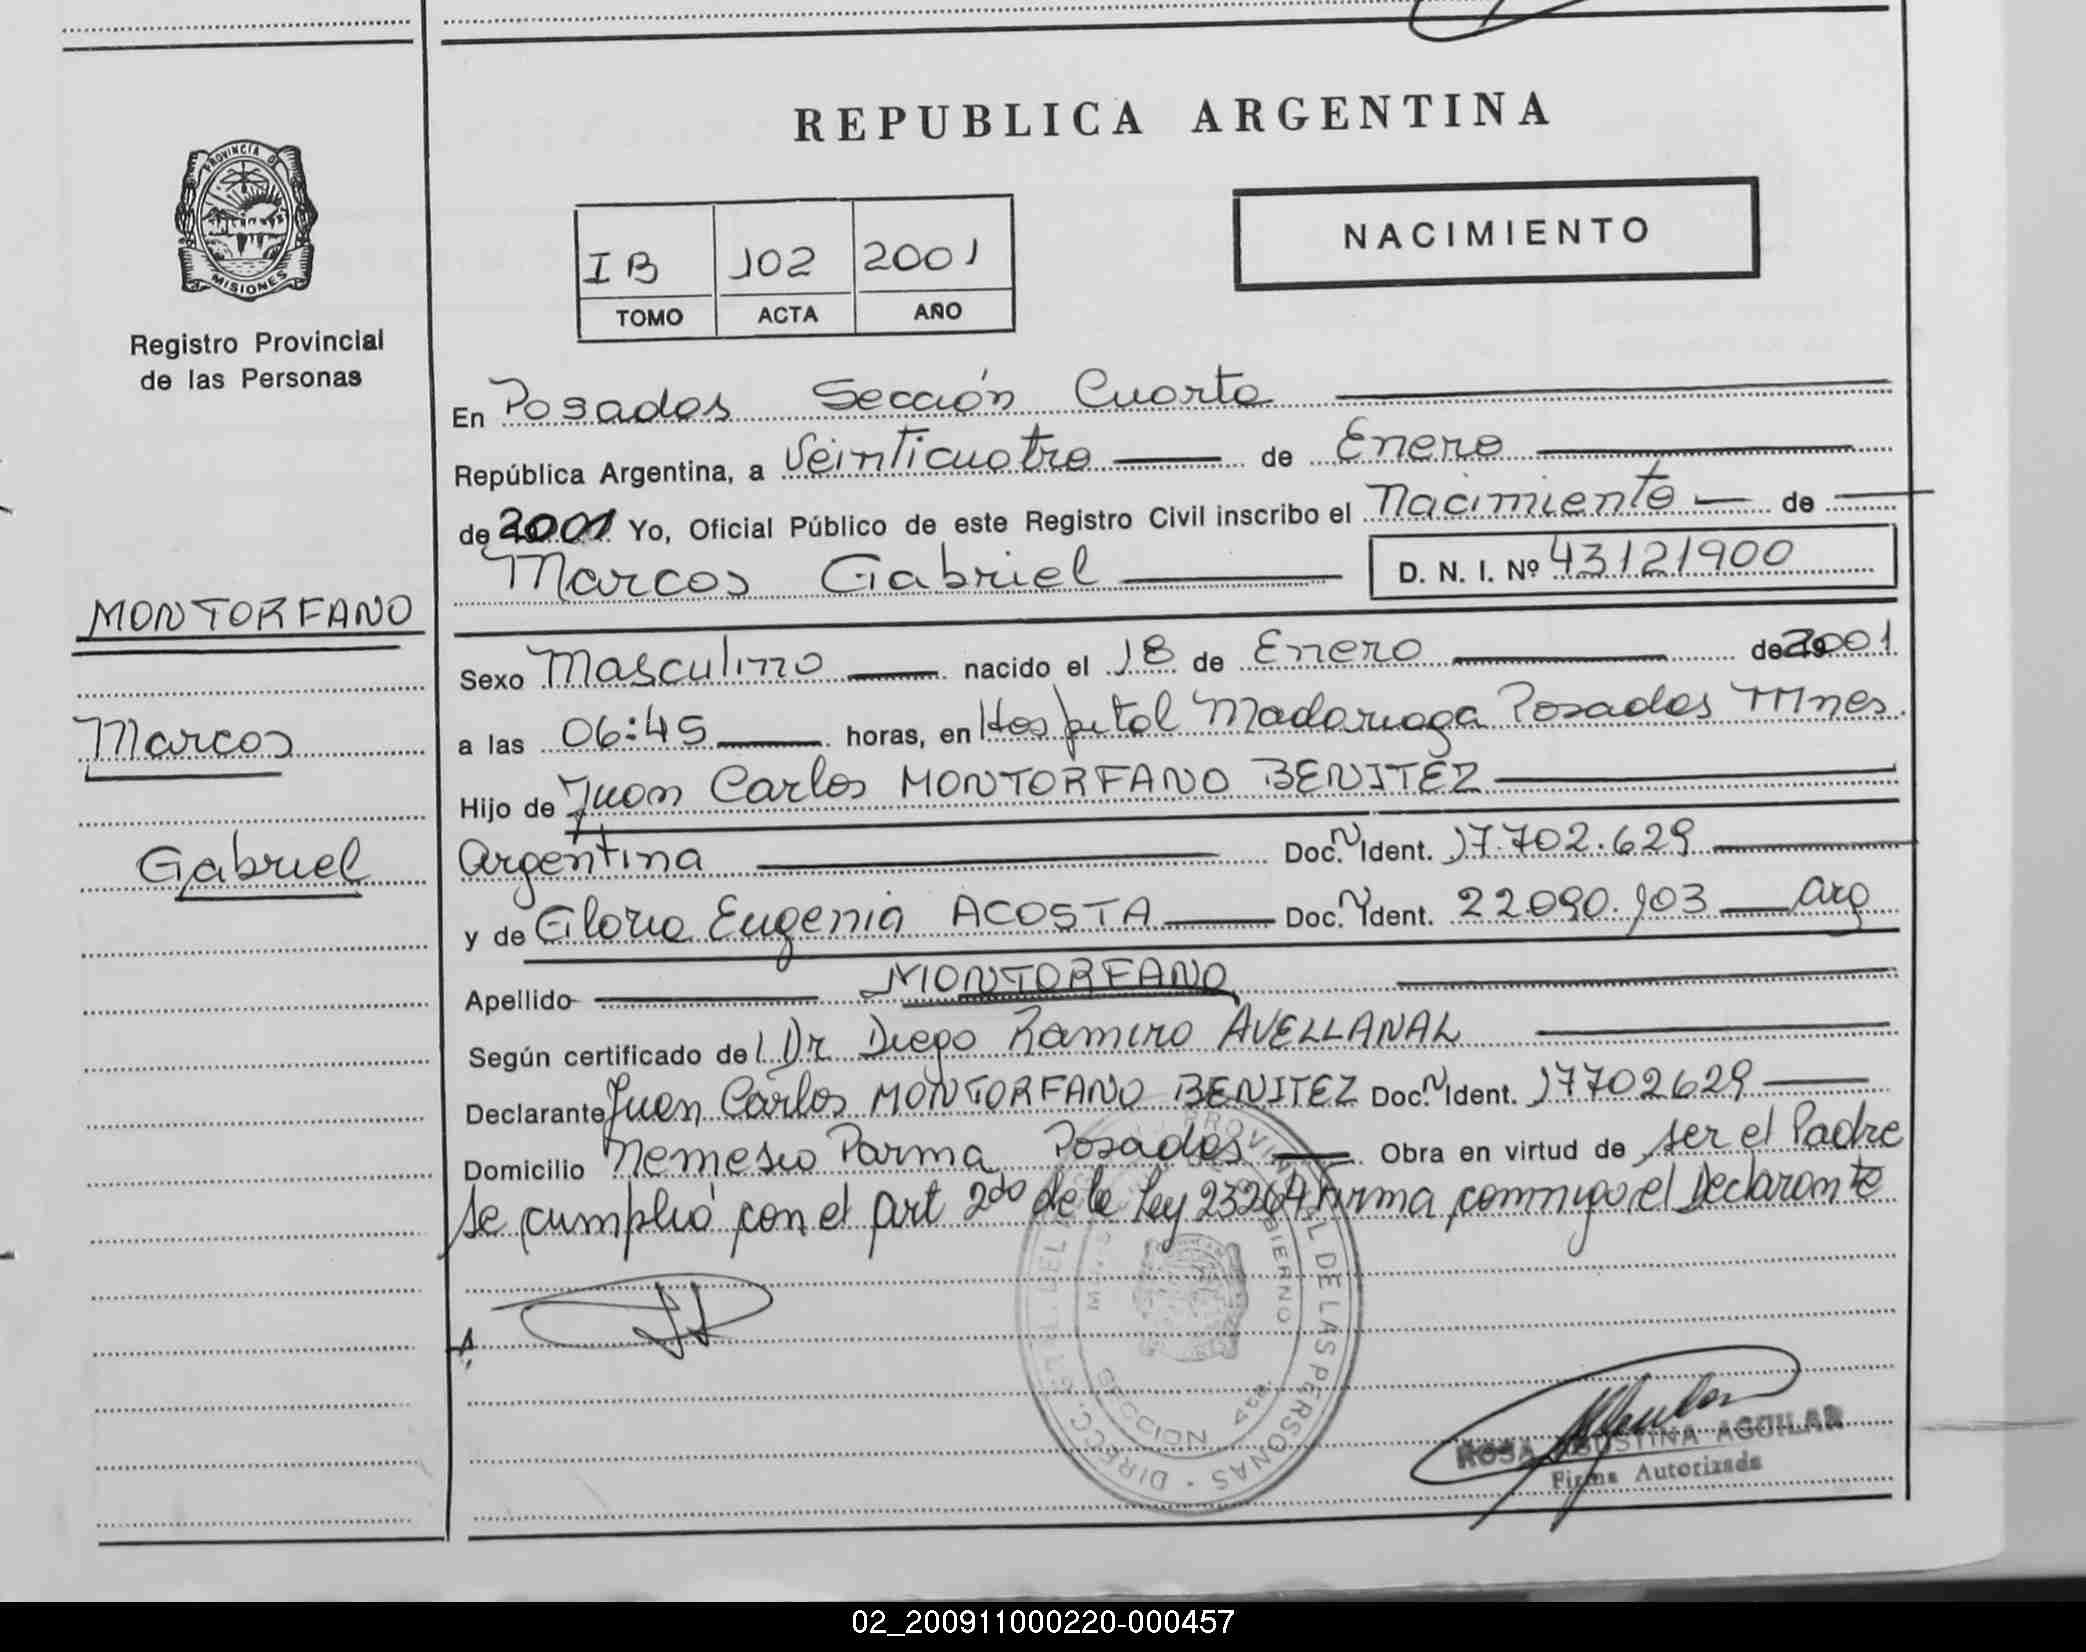 REPUBLICA ARGENTINA
NACIMIENTO
IB 102 2001
TOMO ACTA AÑO
PROVINCIA DE
MISIONES
Registro Provincial
de las Personas
MONTORFANO
Marcos
Gabriel
En Posadas Sección Cuarta
República Argentina, a Veinticuatro de Enero
de 2001 Yo, Oficial Público de este Registro Civil inscribo el Nacimiento de
Marcos Gabriel D. N. I. Nº 43121900
Sexo Masculino nacido el 18 de Enero de 2001
a las 06:45 horas, en Hospital Madariaga Posadas Mnes.
Hijo de Juan Carlos MONTORFANO BENITEZ
Argentina Doc. Ident. 17.702.629
y de Gloria Eugenia ACOSTA Doc. Ident. 22.090.903 Arg
Apellido MONTORFANO
Según certificado del Dr Diego Ramiro AVELLANAL
Declarante Juan Carlos MONTORFANO BENITEZ Doc. Ident. 17702629
Domicilio Nemesio Parma Posadas Obra en virtud de ser el Padre
Se cumplió con el art 2do de la Ley 23264 Firma conmigo el Declarante
PROVINCIAL DE LAS PERSONAS
GOBIERNO
SECCION 4ta
ROSA AGUSTINA AGUILAR
Firma Autorizada
02_200911000220-000457